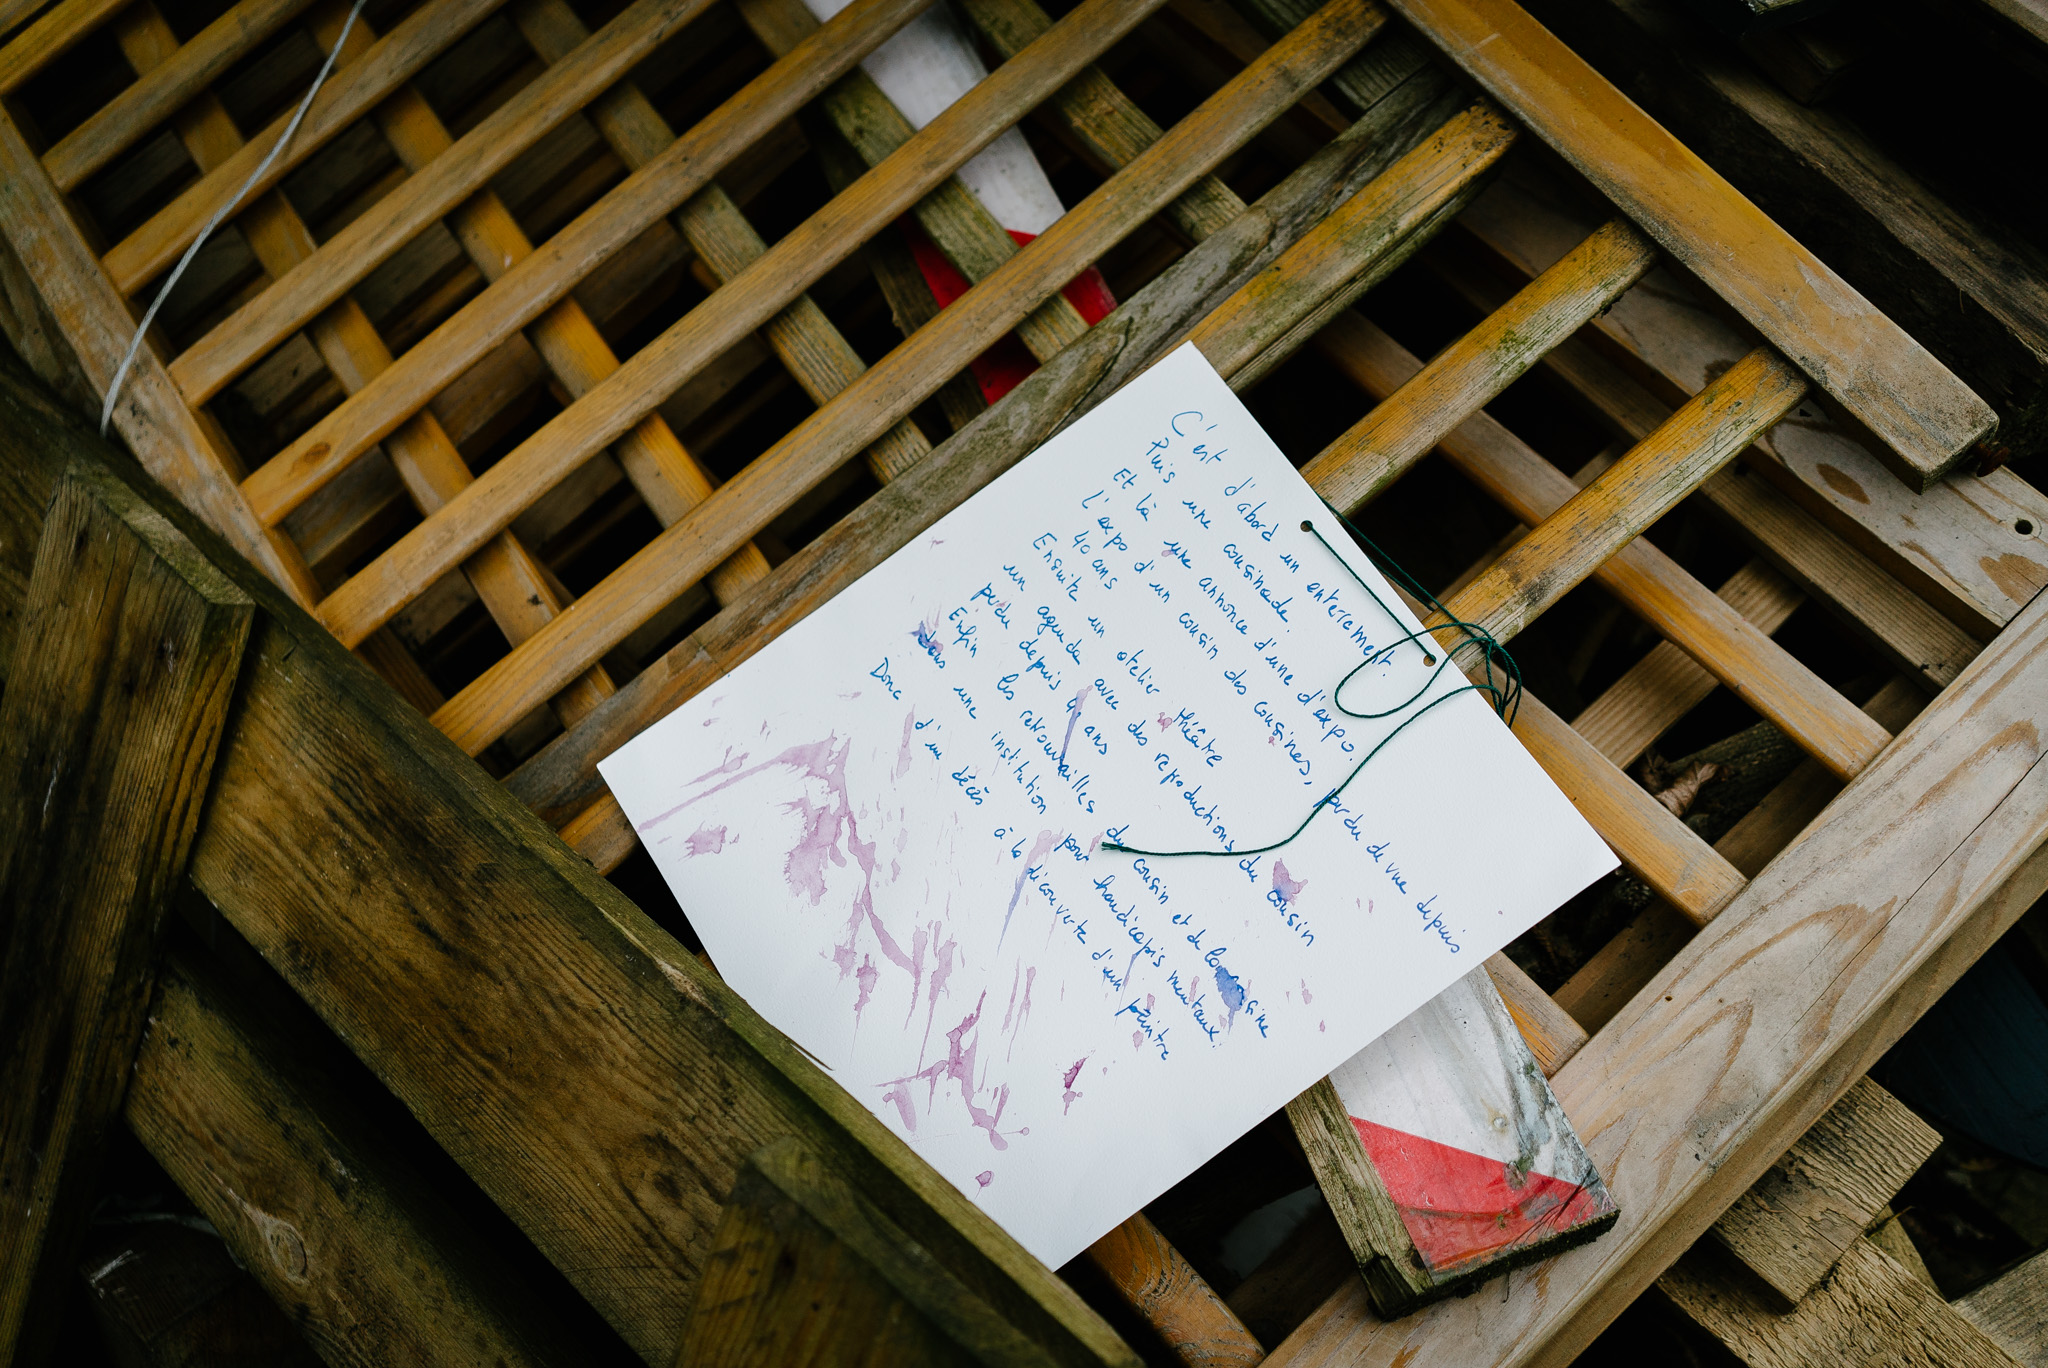 C'est d'abord un enterrement.
Puis une cousinade.
Et là une annonce d'une d'expo.
L'expo d'un cousin des cousines, perdu de vue depuis
40 ans
Ensuite un atelier théâtre
un agenda avec des reproductions du cousin
perdu depuis 40 ans
Enfin les retrouvailles du cousin et de la cousine
dans une institution pour handicapés mentaux.
Donc d'un décès à la découverte d'un peintre